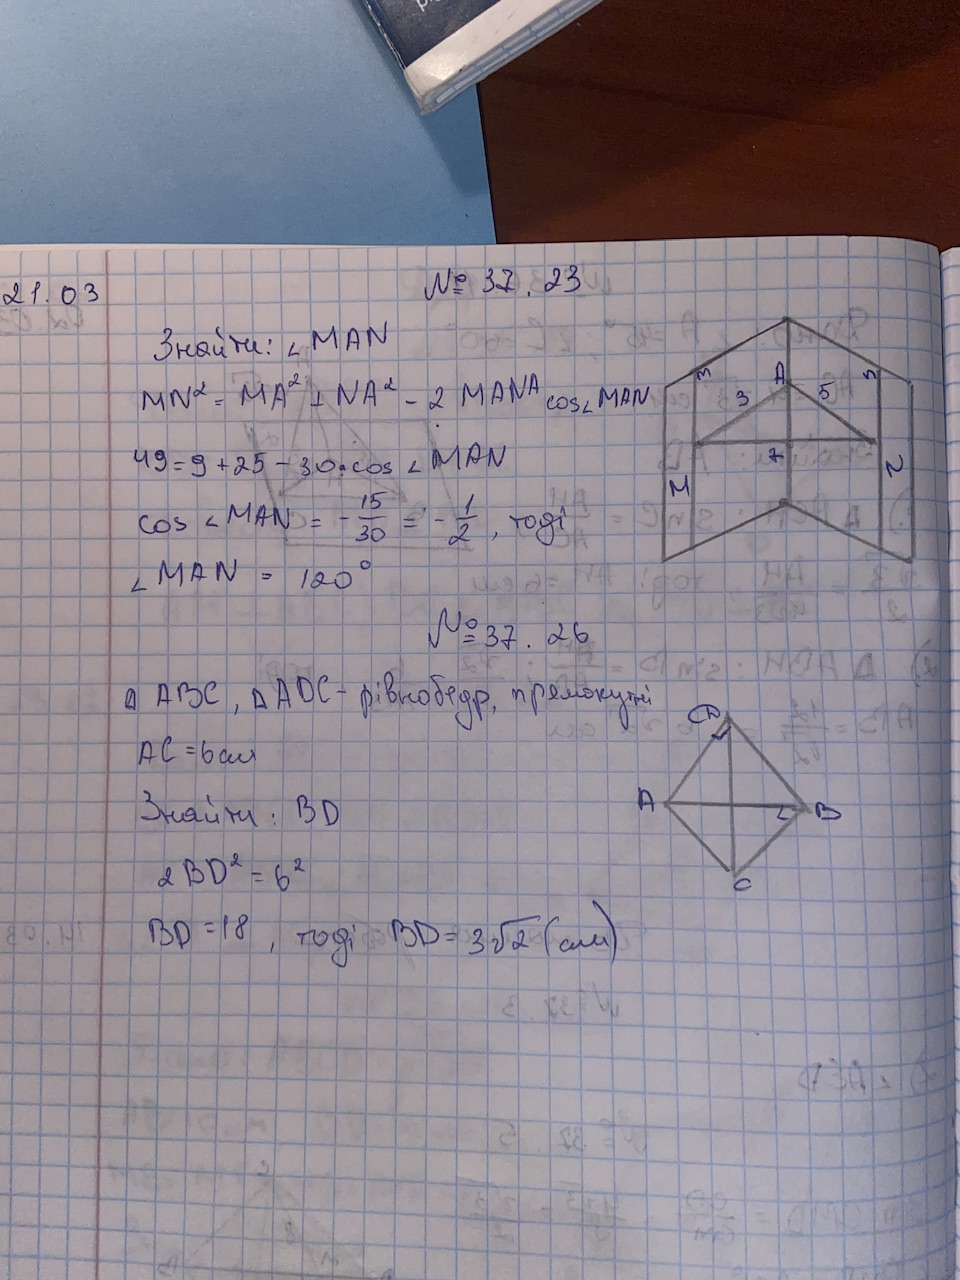 21.03
№ 37. 23
Знайти: ∠MAN
MN² = MA² + NA² - 2 MANA cos∠MAN
49 = 9 + 25 - 30 · cos ∠MAN
cos ∠MAN = - 15/30 = - 1/2, тоді
∠MAN = 120°
A
3
5
7
M
N
№ 37. 26
△ ABC, △ ADC - рівнобедр, прямокутні
AC = 6 см
Знайти: BD
2BD² = 6²
BD = 18, тоді BD = 3√2 (см)
A
B
C